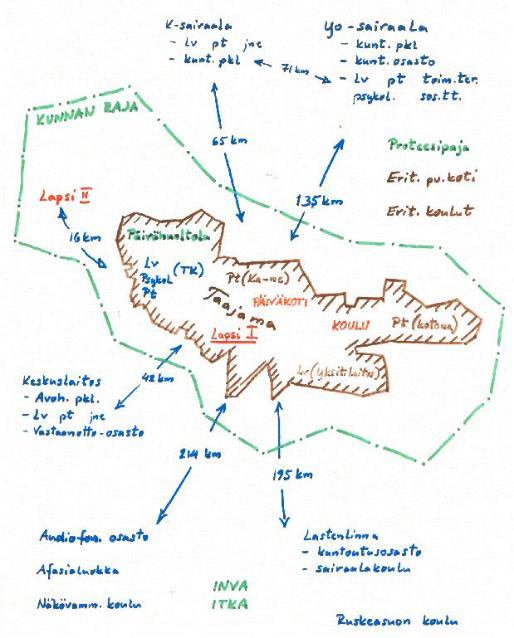 K-sairaala
- Lv pt jne
- kunt. pkl
71 km
Yo-sairaala
- kunt. pkl
- kunt. osasto
- Lv pt toim.ter.
psykol. sos.tt.
KUNNAN RAJA
65 km
135 km
Proteesipaja
Erit. pv.koti
Erit. koulut
Lapsi II
16 km
Päivähuoltola
Lv
Psykol (TK)
Pt
Pt (Ka-ne)
PÄIVÄKOTI
Taajama
Lapsi I
KOULU
Pt (kotona)
Lv (yksit.laitos)
Keskuslaitos
- Avoh. pkl.
- Lv pt jne
- Vastaanotto-osasto
42 km
214 km
195 km
Audiofon. osasto
Afasialuokka
Näkövamm. koulu
INVA
ITKA
Lastenlinna
- kuntoutusosasto
- sairaalakoulu
Ruskeasuon koulu